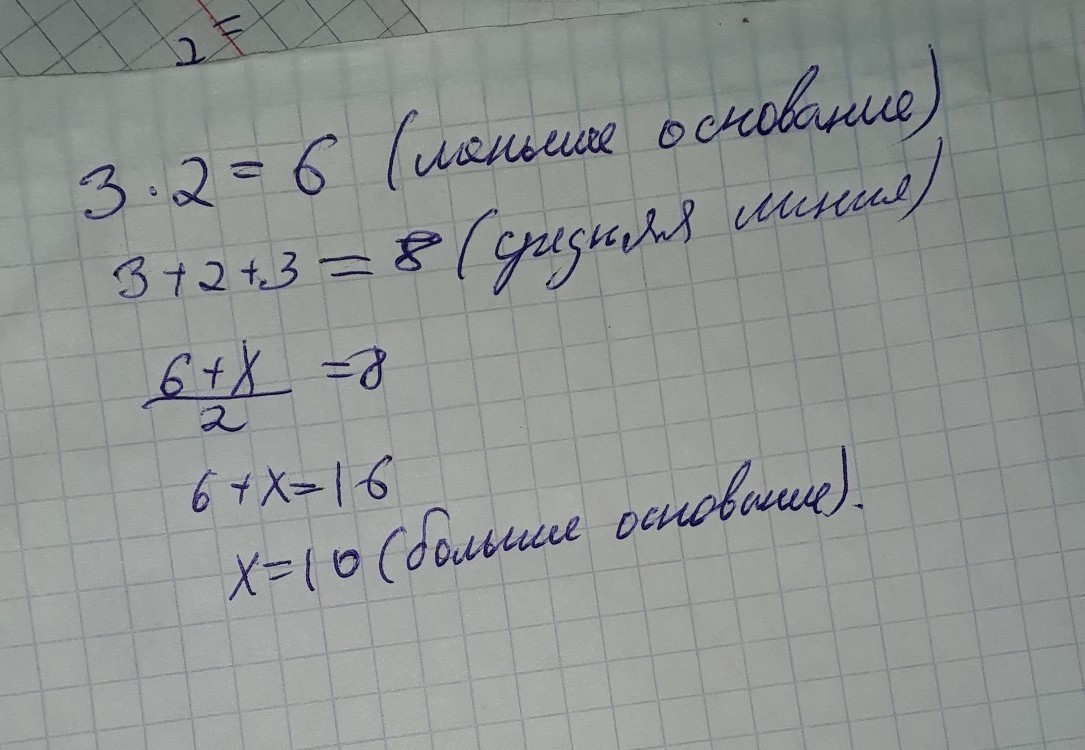 2 =
3 · 2 = 6 (меньшее основание)
3 + 2 + 3 = 8 (средняя линия)
6 + x
2
= 8
6 + x = 16
x = 10 (больше основание).